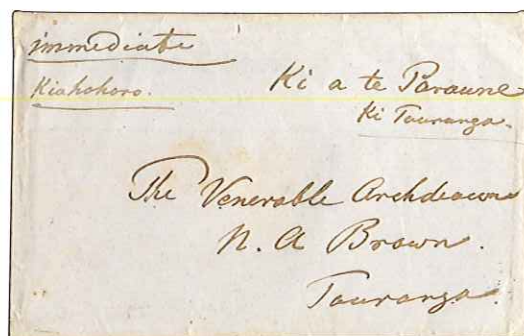 immediate
Kiahohoro.
Ki a te Paraune
Ki Tauranga.
The Venerable Archdeacon
N. A Brown.
Tauranga.